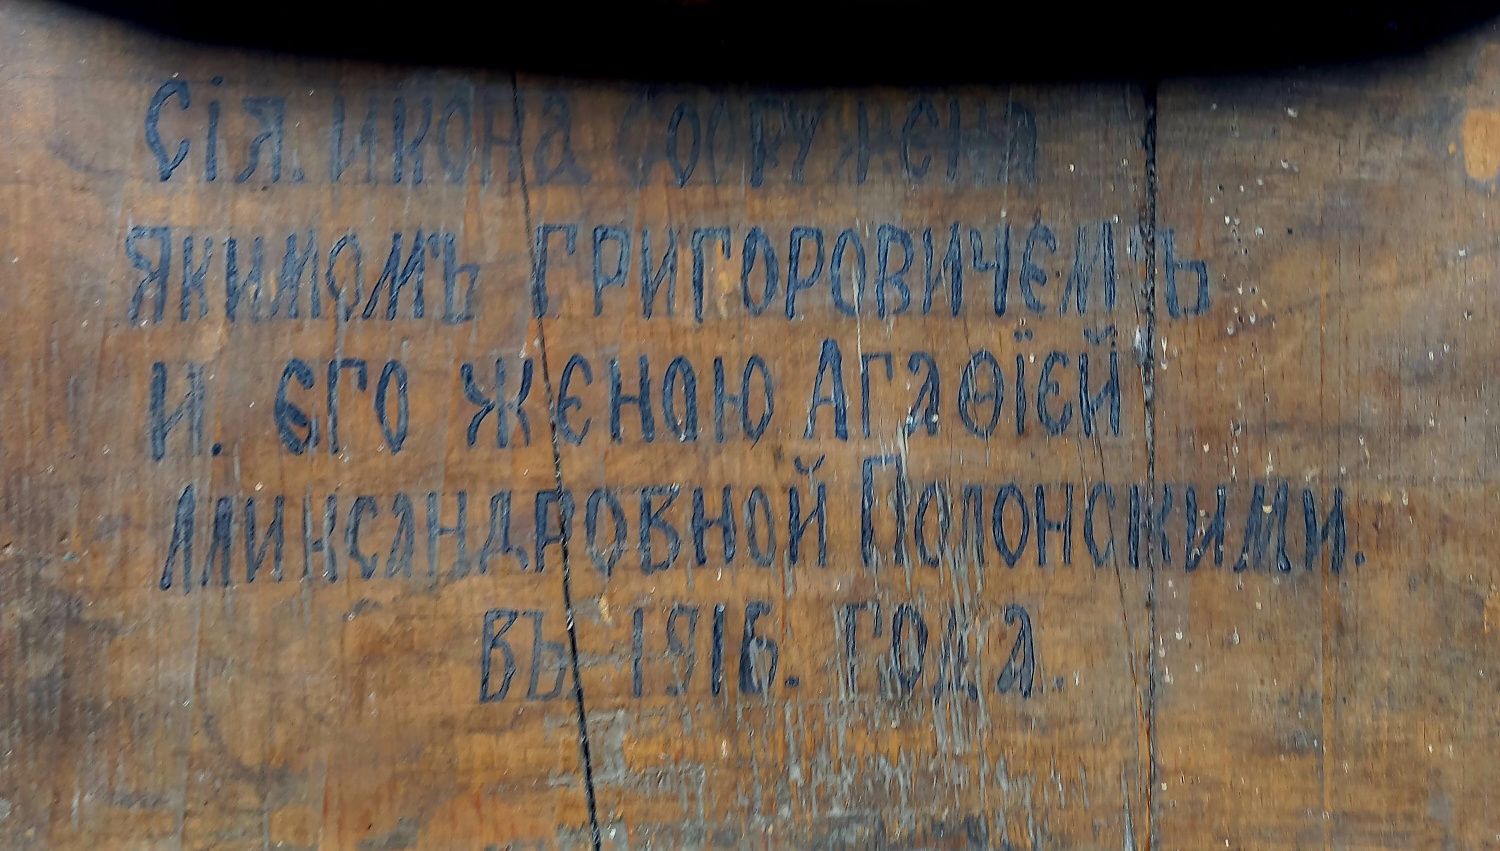 Сія икона сооружена
Якимомъ Григоровичемъ
И. єго жєною Агаѳїєй
Аликсандровной Полонскими.
въ 1916. года.